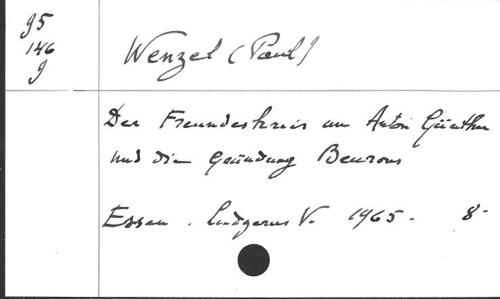 95
146
9
Wenzel (Paul)
Der Freundeskreis um Anton Günther
und die Gründung Beurons
Essen. Ludgerus V. 1965. 8°